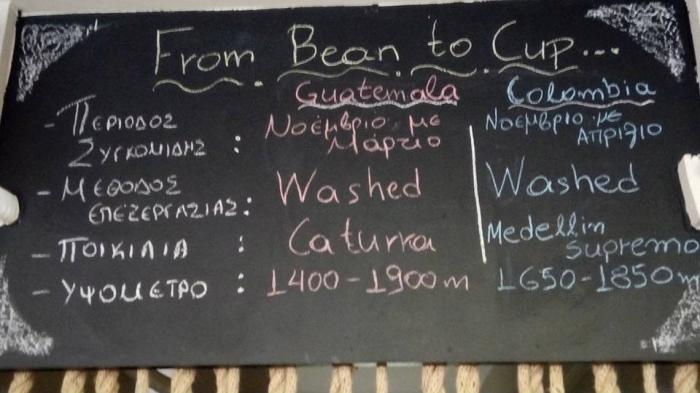 From Bean to Cup...
Guatemala Colombia
- Περιοδος Συγκομιδης : Νοέμβριο με Μάρτιο Νοέμβριο με Απρίλιο
- Μεθοδος επεξεργασιας : Washed Washed
- Ποικιλια : Caturra Medellin Supremo
- Υψομετρο : 1400-1900m 1650-1850m